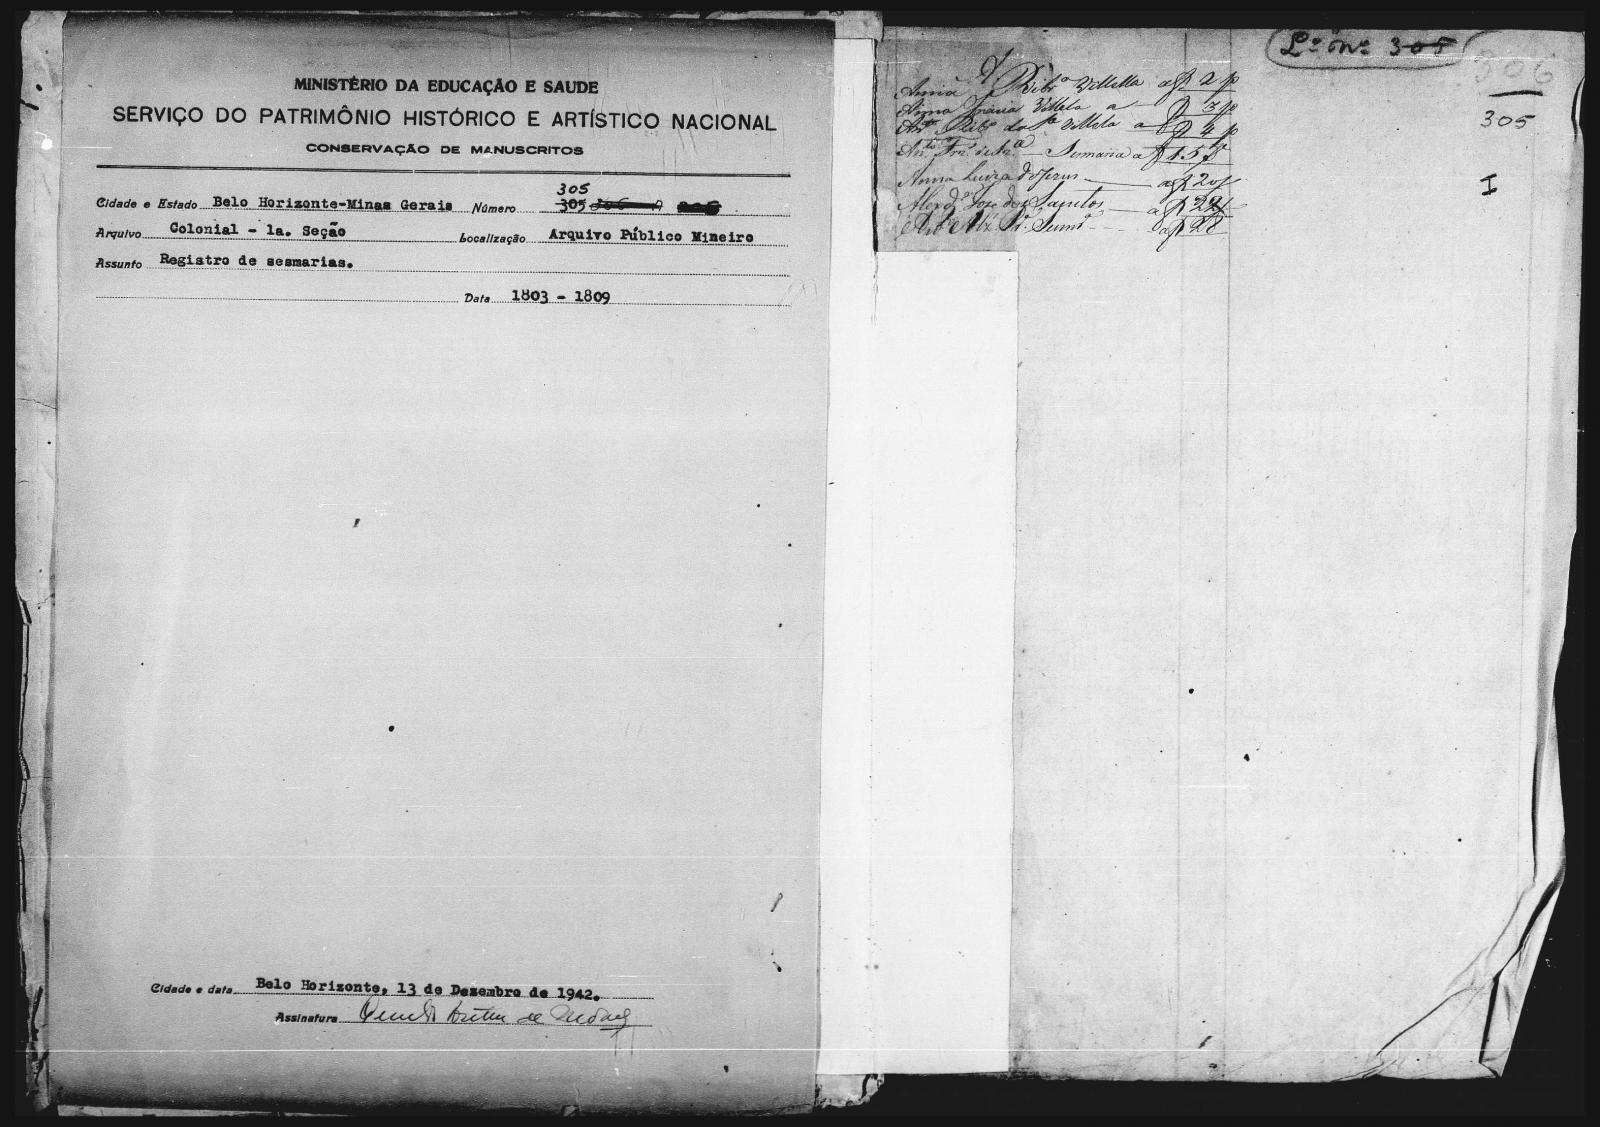 MINISTÉRIO DA EDUCAÇÃO E SAUDE
SERVIÇO DO PATRIMÔNIO HISTÓRICO E ARTÍSTICO NACIONAL
CONSERVAÇÃO DE MANUSCRITOS
305
Cidade e Estado Belo Horizonte-Minas Gerais Número 305
Arquivo Colonial - 1a. Seção Localização Arquivo Público Mineiro
Assunto Registro de sesmarias.
Data 1803 - 1809
Cidade e data Belo Horizonte, 13 de Dezembro de 1942.
Assinatura
Lº nº 305
306
305
I
Anna Ribrº Villella a f 2
Anna Villela a f 3
Villela a f 4
Sesmaria a f 15
Anna Luiza de Jezus a f 20
José dos Santos a f 22
a f 28